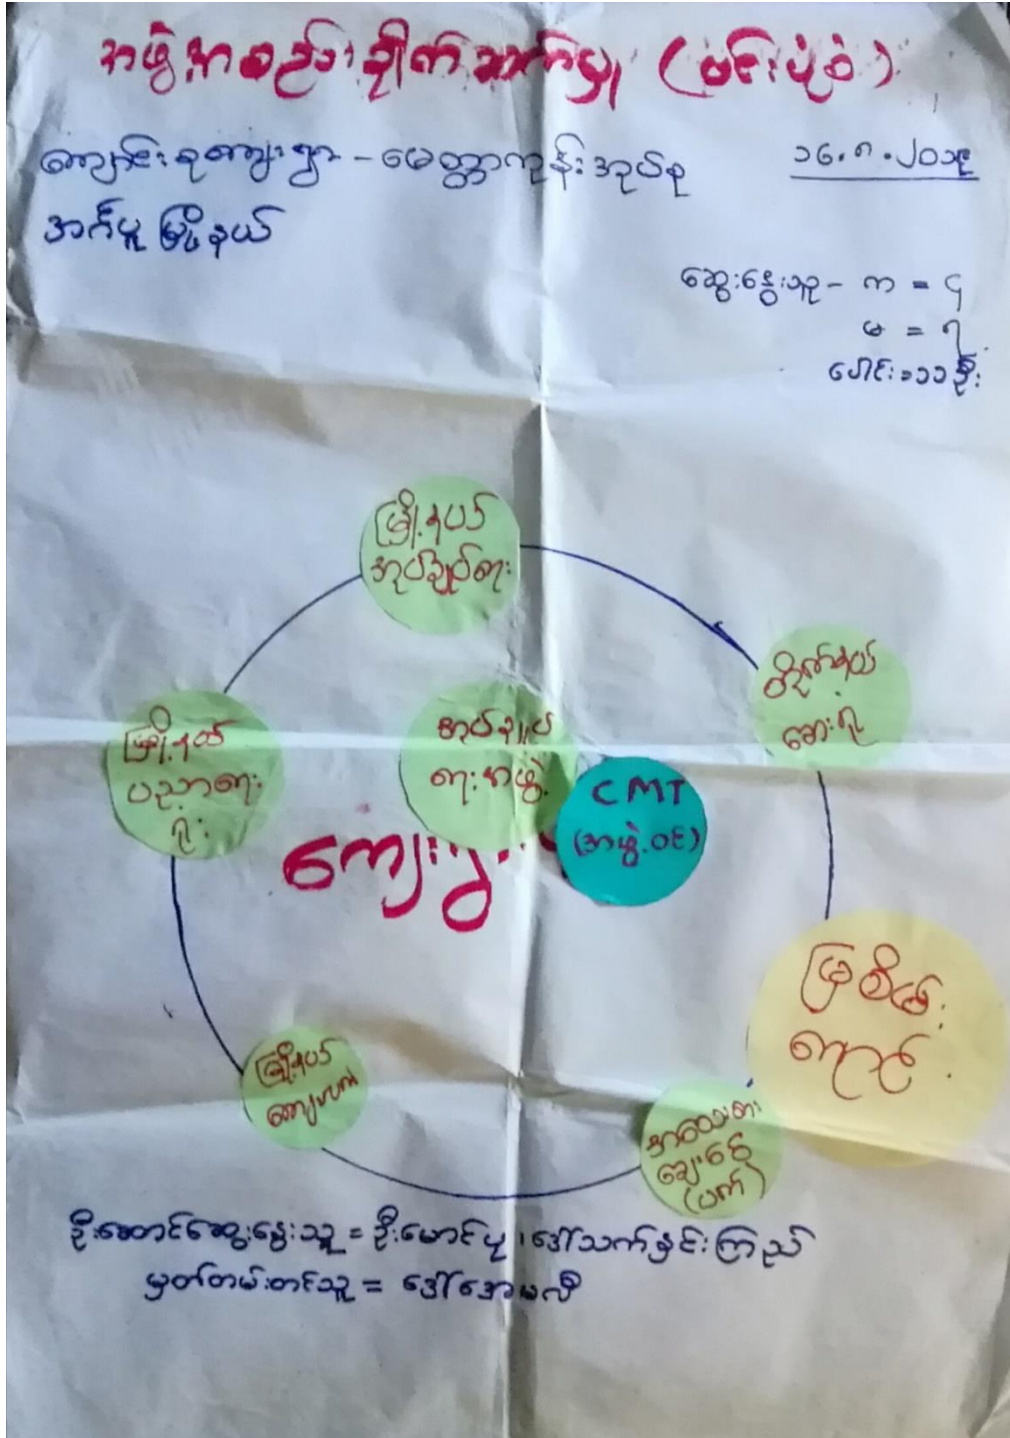 အဖွဲ့အစည်းချိတ်ဆက်မှု (ဝင်းပုံစံ)
ကျောင်းစုကျေးရွာ - မေတ္တာကုန်းအုပ်စု
၁၆.၈.၂၀၁၉
အင်္ဂပူမြို့နယ်
ဆွေးနွေးသူ - က = ၄
မ = ၇
ပေါင်း = ၁၁ ဦး
မြို့နယ်
အုပ်ချုပ်ရေး
တိုက်နယ်
ဆေးရုံ
မြို့နယ်
ပညာရေး
ရုံး
အုပ်ချုပ်
ရေးအဖွဲ့
CMT
(အဖွဲ့ဝင်)
ကျေးရွာ
မြစိမ်း
ရောင်
မြို့နယ်
ကျေးလက်
အသေးစား
ချေးငွေ
(ပက်)
ဦးဆောင်ဆွေးနွေးသူ = ဦးမောင်ပု၊ ဒေါ်သက်နှင်းကြည်
မှတ်တမ်းတင်သူ = ဒေါ်အေမလီ